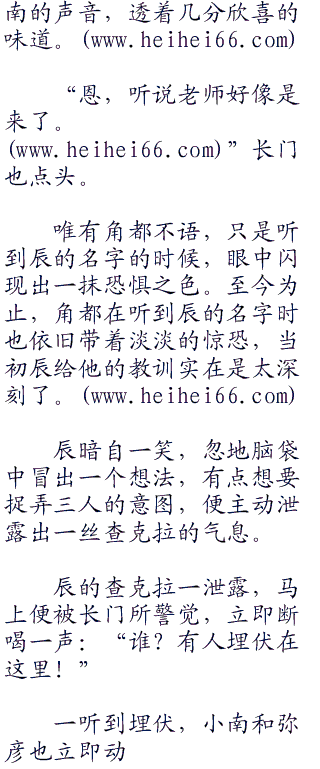 南的声音，透着几分欣喜的
味道。(www.heihei66.com)
“恩，听说老师好像是
来了。
(www.heihei66.com)”长门
也点头。
唯有角都不语，只是听
到辰的名字的时候，眼中闪
现出一抹恐惧之色。至今为
止，角都在听到辰的名字时
也依旧带着淡淡的惊恐，当
初辰给他的教训实在是太深
刻了。(www.heihei66.com)
辰暗自一笑，忽地脑袋
中冒出一个想法，有点想要
捉弄三人的意图，便主动泄
露出一丝查克拉的气息。
辰的查克拉一泄露，马
上便被长门所警觉，立即断
喝一声：“谁？有人埋伏在
这里！”
一听到埋伏，小南和弥
彦也立即动